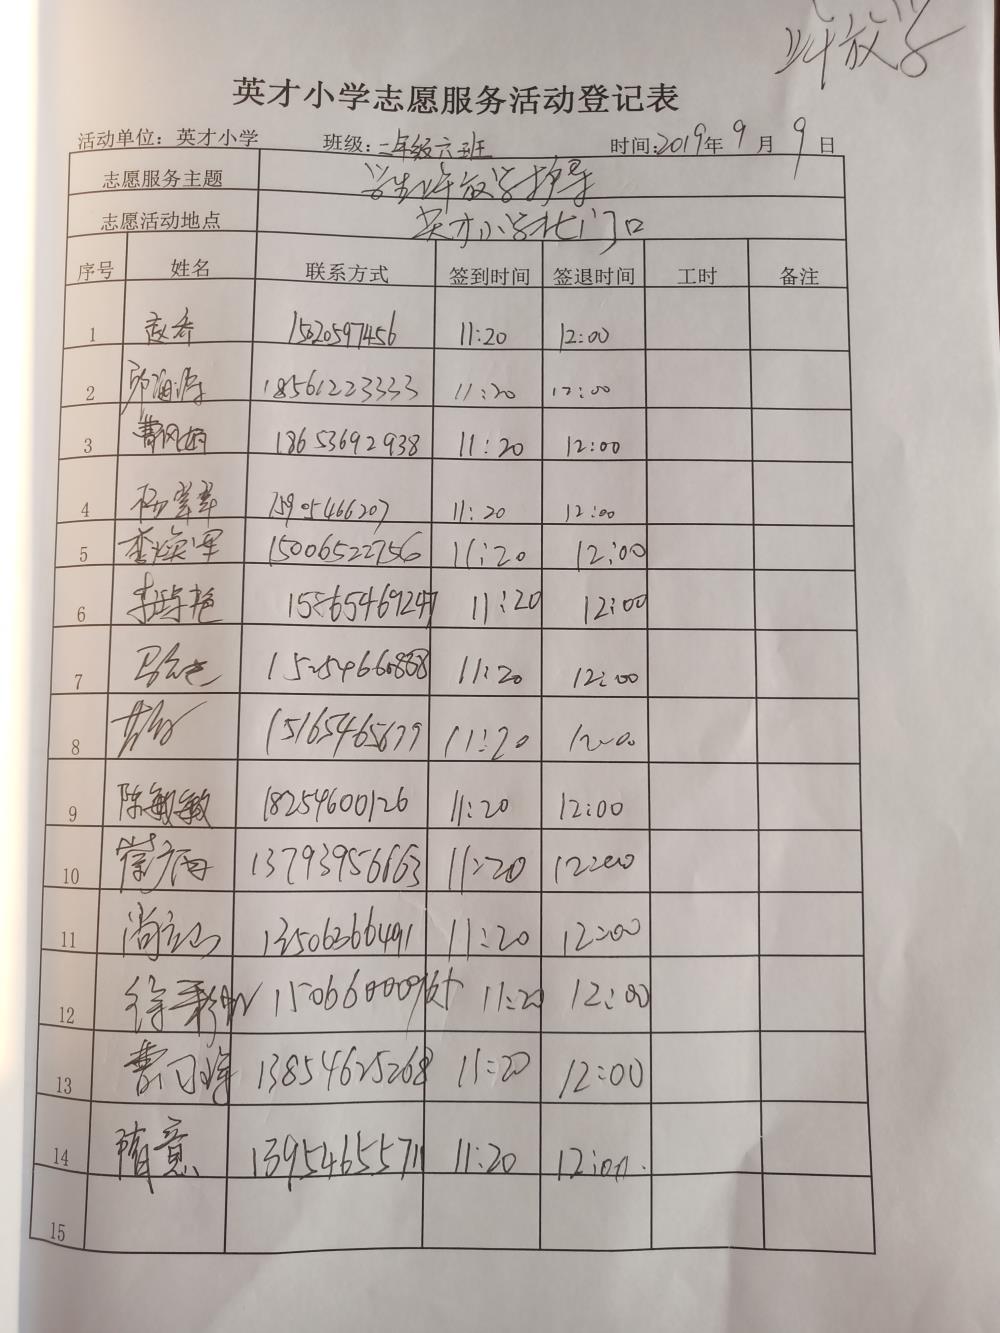 午放学
英才小学志愿服务活动登记表
活动单位: 英才小学 班级: 二年级六班 时间: 2019年9月9日
志愿服务主题 学生午放学护导
志愿活动地点 英才小学北门口
序号 姓名 联系方式 签到时间 签退时间 工时 备注
1 11:20 12:00
2 18561223333 11:20 12:00
3 18653692938 11:20 12:00
4 杨翠翠 15905466207 11:20 12:00
5 李焕军 15006522756 11:20 12:00
6 11:20 12:00
7 15254660888 11:20 12:00
8 15165465679 11:20 12:00
9 陈敏敏 18254600126 11:20 12:00
10 13793956663 11:20 12:00
11 13506366491 11:20 12:00
12 11:20 12:00
13 13854625268 11:20 12:00
14 隋意 13954655711 11:20 12:00
15